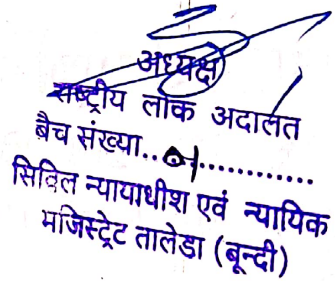 अध्यक्ष
राष्ट्रीय लोक अदालत
बैच संख्या..01.............
सिविल न्यायाधीश एवं न्यायिक
मजिस्ट्रेट तालेडा (बून्दी)